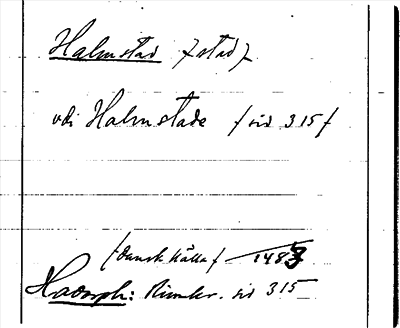 Halmstad /stad/
vdi Halmstade /sid 315/
/dansk källa/ 1483
Hadorph: Rimkr. sid 315